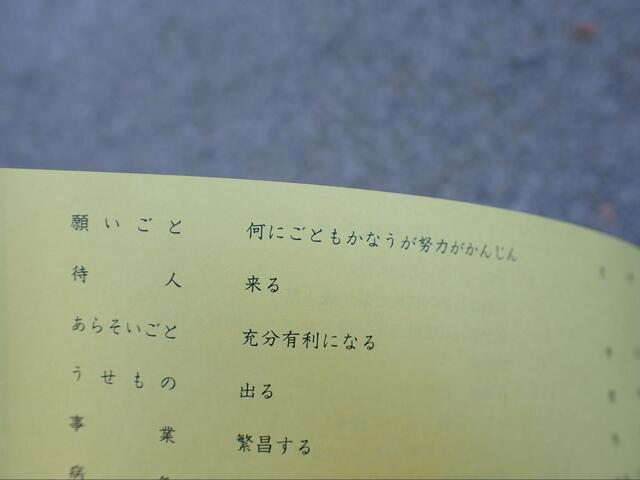 願いごと 何にごともかなうが努力がかんじん
待人 来る
あらそいごと 充分有利になる
うせもの 出る
事業 繁昌する
病